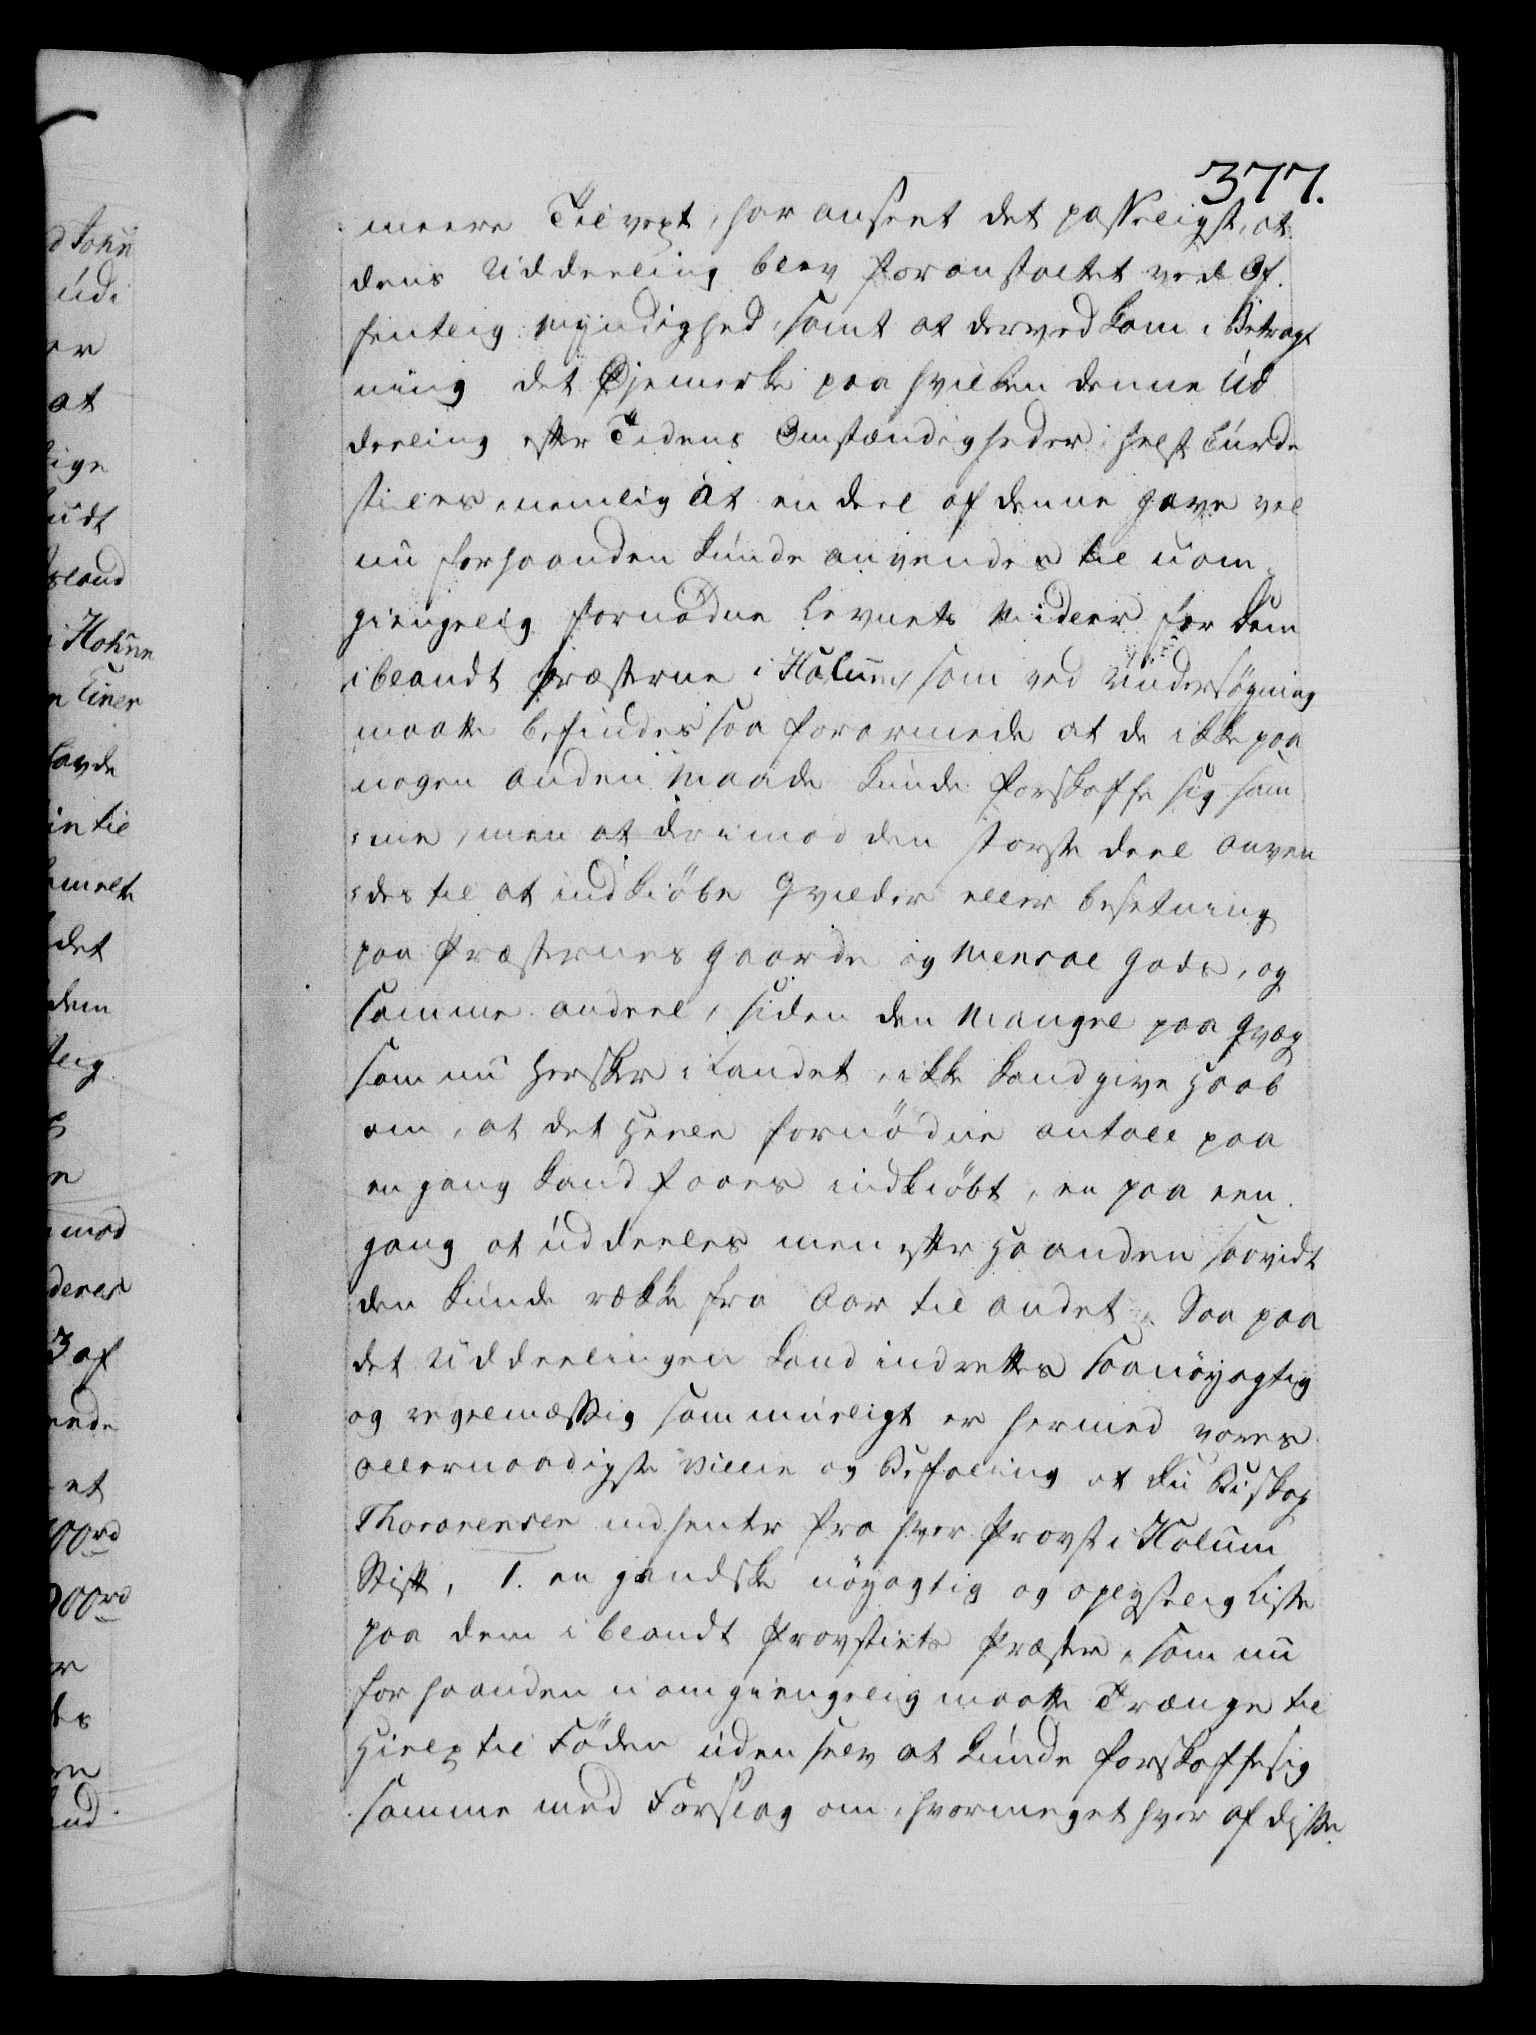 377.
meere Tilvext, har anseet det passeligst, at
dens Uddeeling blev foranstaltet ved Of¬
fentlig Myndighed, samt at derved kom i Betragt
ning det Øjemerke paa hvilken denne Ud
deeling efter Tidens Omstændigheder helst burde
stiles, nemlig at en deel af denne gave vel
nu forhaanden kunde anvendes til uom¬
giengelig fornødne Levnets Midler for dem
iblandt Præsterne i Holum, som ved Undersøgning
maatte befindes saa forarmede at de ikke paa
nogen anden Maade kunde forskaffe sig sam
me, men at derimod den største deel anven
des til at indkiøbe Qvilder eller besetning
paa Præsternes gaarde og Mensal Gods, og
samme andeel, siden den Mangel paa Qvæg
som nu hersker i Landet, ikke kand give Haab
om, at det heele fornødne antall paa
en gang kand faaes indkiøbt, en paa een
gang at uddeeles men efter haanden saavidt
den kunde række fra Aar til andet. Saa paa
det Uddeelingen kand indrettes saa nøyagtig
og regelmæssig som mueligt er hermed vores
allernaadigste Villie og Befaling at du Biskop
Thorarensen indhenter fra hver Provst i Holum
Stift, 1. en gandske nøyagtig og oplyselig Liste
paa dem iblandt Provstiets Præster, som nu
forhaanden uomgiengelig maatte Trænge til
Hielp til Føden uden selv at kunde forskaffe sig
samme med Forslag om, hvormeget hver af disse